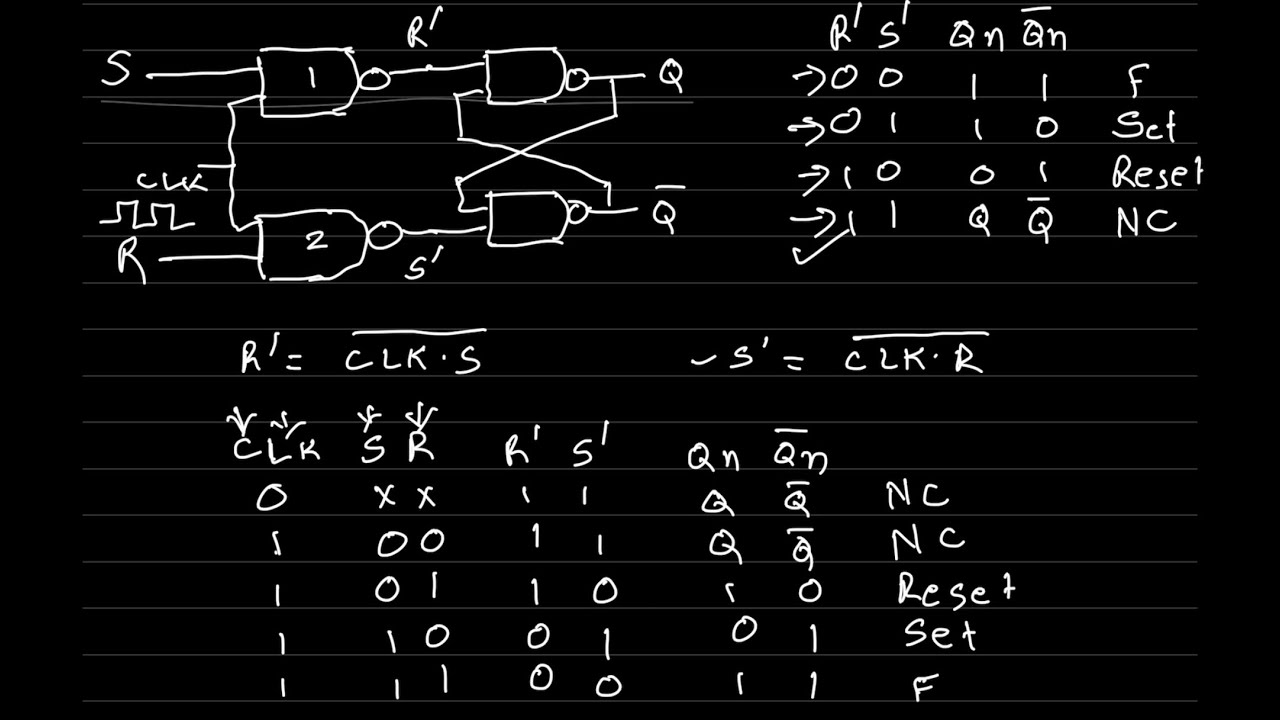 R' S' Qn Q̅n
S 1 R' Q
→0 0 1 1 F
→0 1 1 0 Set
→1 0 0 1 Reset
→1 1 Q Q̅ NC
CLK
R 2 S' Q̅
R' = \overline{CLK·S}
- S' = \overline{CLK·R}
CLK S R R' S' Qn Q̅n
0 x x 1 1 Q Q̅ NC
1 0 0 1 1 Q Q̅ NC
1 0 1 1 0 1 0 Reset
1 1 0 0 1 0 1 Set
1 1 1 0 0 1 1 F